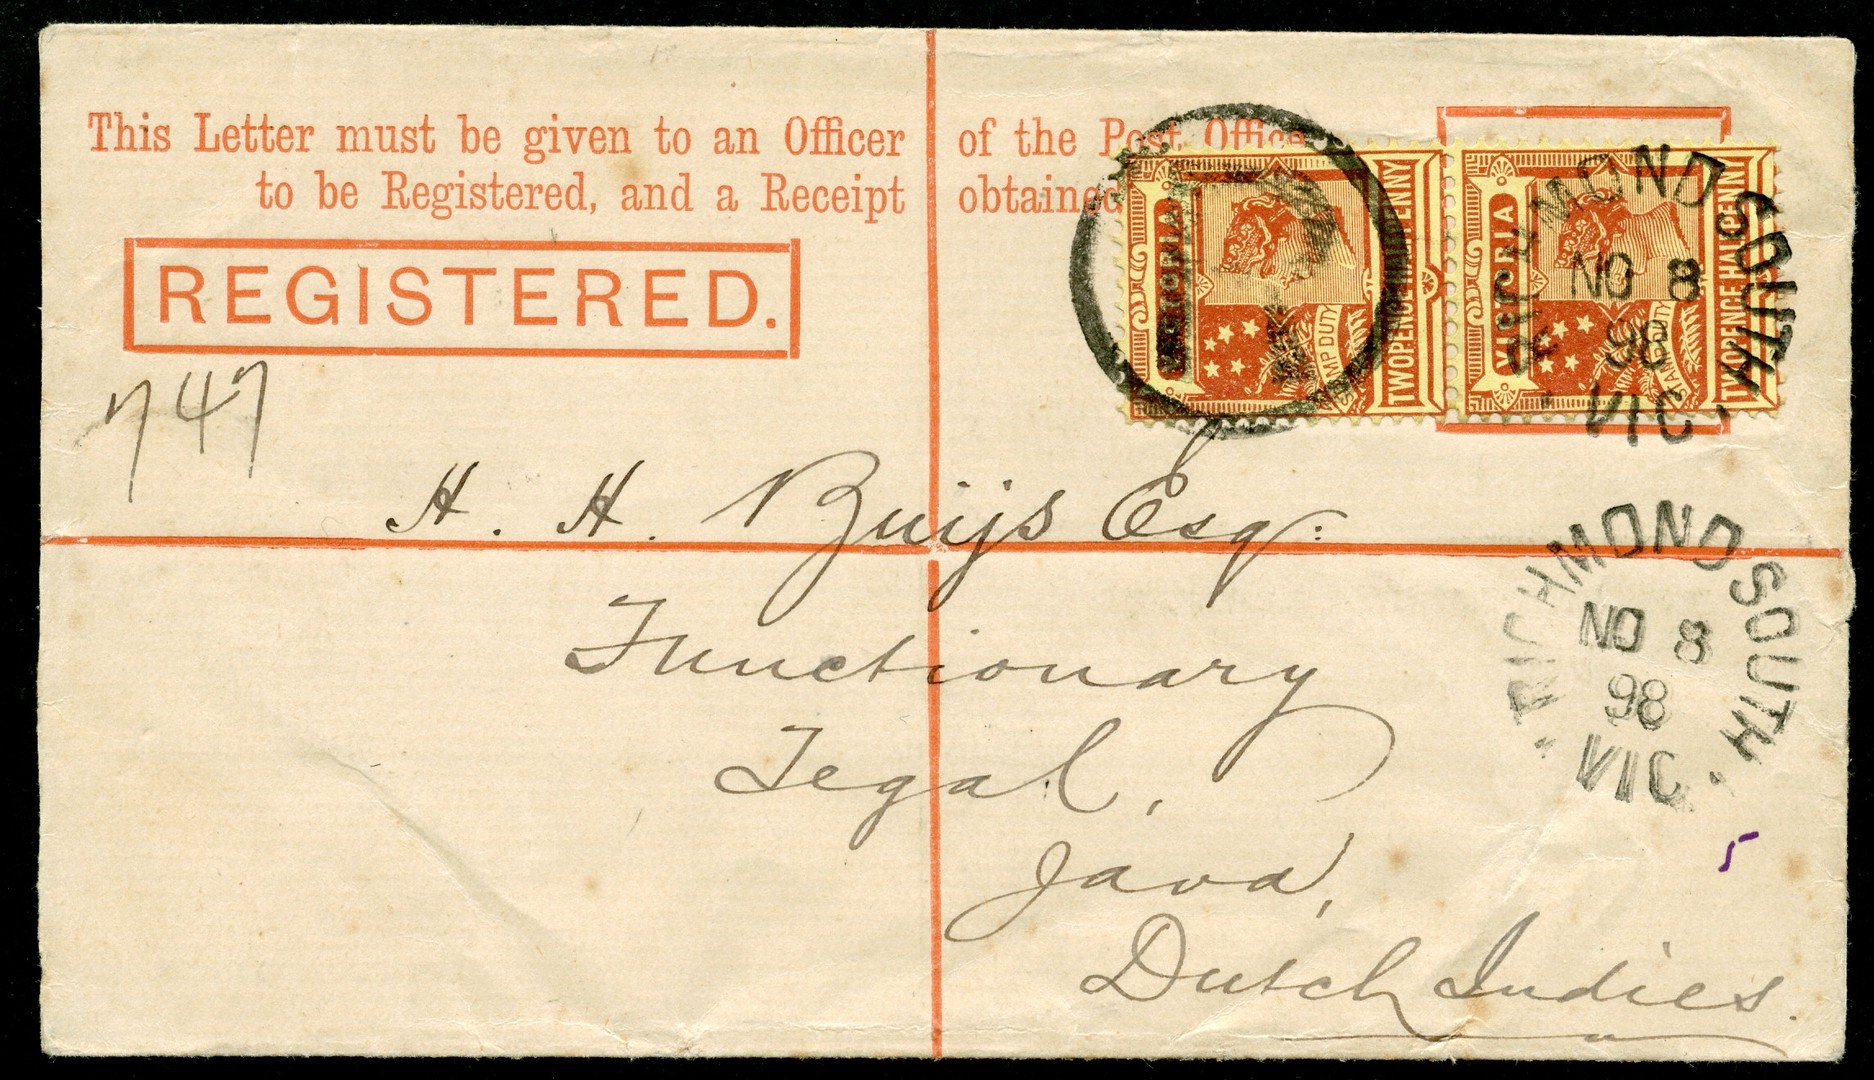 This Letter must be given to an Officer of the Post Office
to be Registered, and a Receipt obtained
REGISTERED.
747
VICTORIA
STAMP DUTY
TWOPENCE HALFPENNY
VICTORIA
STAMP DUTY
TWOPENCE HALFPENNY
RICHMOND SOUTH
NO 8
98
VIC
H. H. Buijs Esq:
Functionary
Tegal,
Java,
Dutch Indies.
RICHMOND SOUTH
NO 8
98
VIC
5